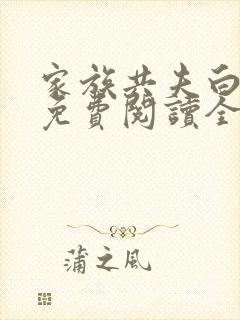 家族共夫白
免費閱讀全
蒲之風